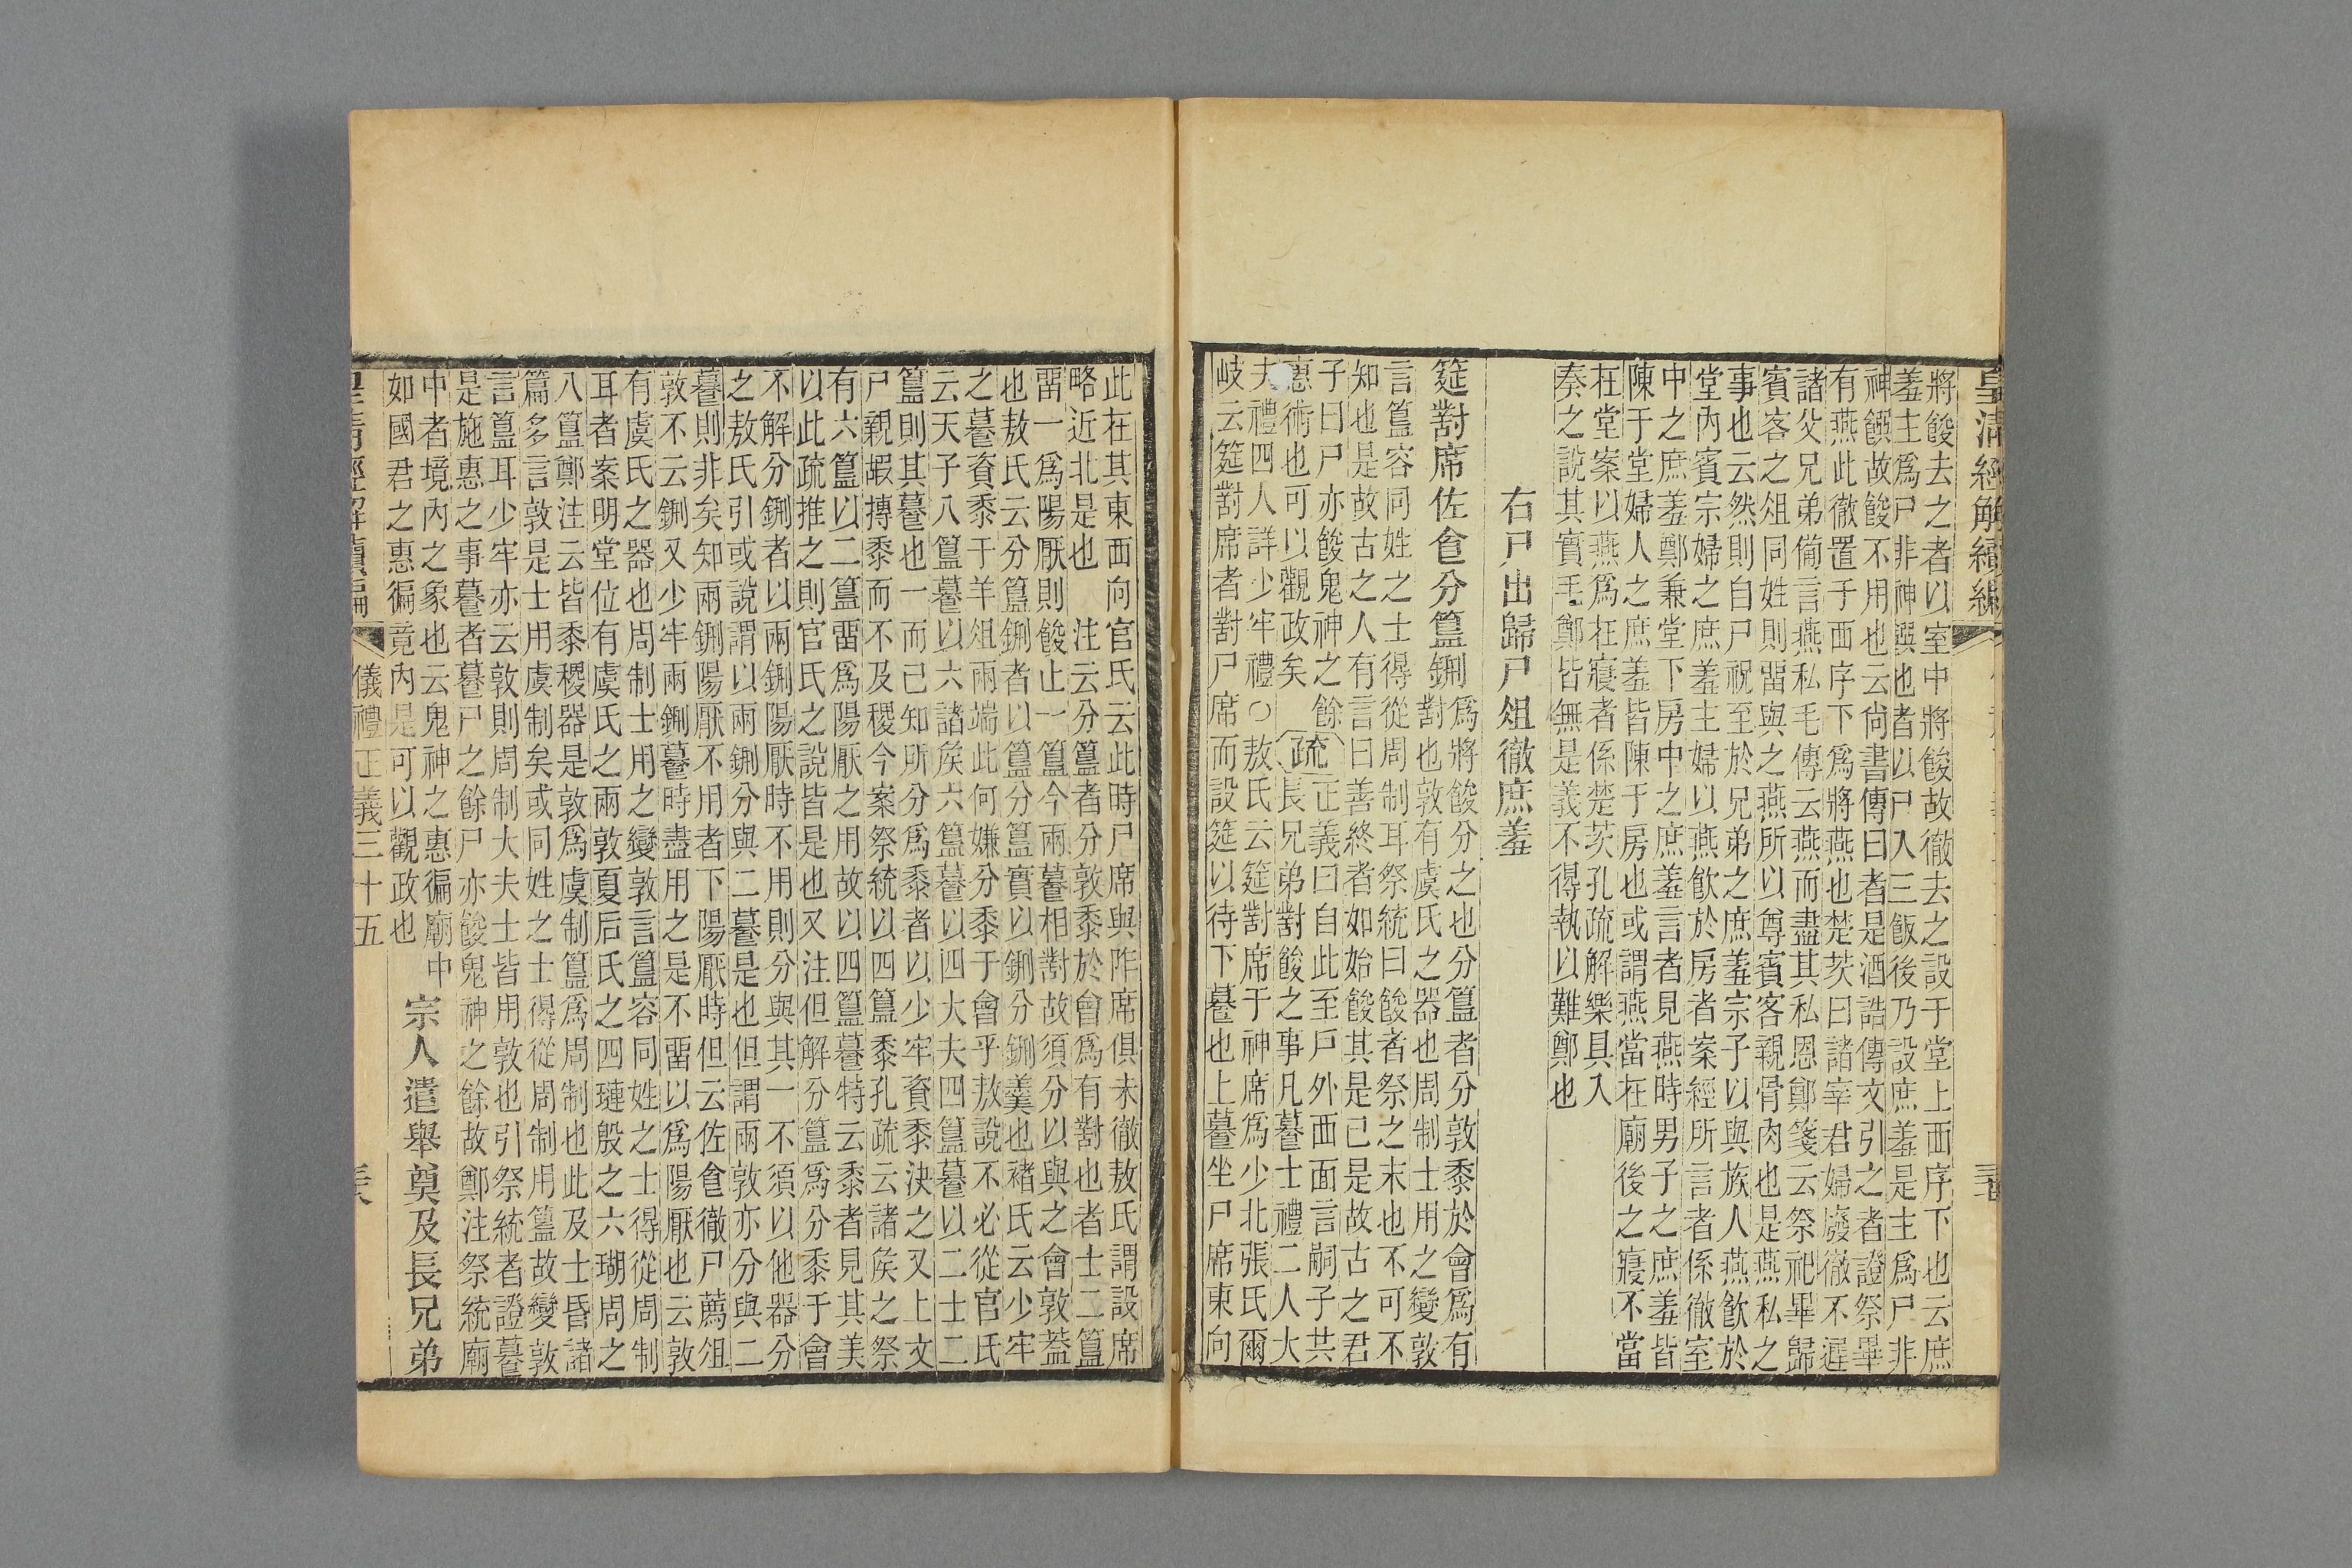 皇清經解續編
將餕去之者以室中將餕故徹去之設于堂上西序下也云庶
羞主爲尸非神饌也者以尸入三飯後乃設庶羞是主爲尸非
神饌故餕不用也云尙書傳曰者是酒誥傳文引之者證祭畢
有燕此徹置于西序下爲將燕也楚茨曰諸宰君婦廢徹不遲
諸父兄弟備言燕私毛傳云燕而盡其私恩鄭箋云祭祀畢歸
賓客之俎同姓則畱與之燕所以尊賓客親骨肉也是燕私之
事也云然則自尸祝至於兄弟之庶羞宗子以與族人燕飮於
堂內賓宗婦之庶羞主婦以燕飮於房者案經所言者係徹室
中之庶羞鄭兼堂下房中之庶羞言者見燕時男子之庶羞皆
陳于堂婦人之庶羞皆陳于房也或謂燕當在廟後之寢不當
在堂案以燕爲在寢者係楚茨孔疏解樂具入
奏之說其實毛鄭皆無是義不得執以難鄭也
右尸出歸尸俎徹庶羞
筵對席佐食分簋鉶
爲將餕分之也分簋者分敦黍於會爲有
對也敦有虞氏之器也周制士用之變敦
言簋容同姓之士得從周制耳祭統曰餕者祭之末也不可不
知也是故古之人有言曰善終者如始餕其是已是故古之君
子曰尸亦餕鬼神之餘
惠術也可以觀政矣
疏
正義曰自此至戶外西面言嗣子共
長兄弟對餕之事凡䞇士禮二人大
夫禮四人詳少牢禮○敖氏云筵對席于神席爲少北張氏爾
岐云筵對席者對尸席而設筵以待下䞇也上䞇坐尸席東向
此在其東西向官氏云此時尸席與阼席俱未徹敖氏謂設席
略近北是也 注云分簋者分敦黍於會爲有對也者士二簋
畱一爲陽厭則餕止一簋今兩䞇相對故須分以與之會敦葢
也敖氏云分簋鉶者以簋分簋實以鉶分鉶羹也褚氏云少牢
之䞇資黍于羊俎兩端此何嫌分黍于會乎敖說不必從官氏
云天子八簋䞇以六諸矦六簋䞇以四大夫四簋䞇以二士二
簋則其䞇也一而已知所分爲黍者以少牢資黍決之又上文
尸親嘏摶黍而不及稷今案祭統以四簋黍孔疏云諸矦之祭
有六簋以二簋畱爲陽厭之用故以四簋䞇特云黍者見其美
以此疏推之則官氏之說皆是也又注但解分簋爲分黍于會
不解分鉶者以兩鉶陽厭時不用則分與其一不須以他器分
之敖氏引或說謂以兩鉶分與二䞇是也但謂兩敦亦分與二
䞇則非矣知兩鉶陽厭不用者下陽厭時但云佐食徹尸薦俎
敦不云鉶又少牢兩鉶䞇時盡用之是不畱以爲陽厭也云敦
有虞氏之器也周制士用之變敦言簋容同姓之士得從周制
耳者案明堂位有虞氏之兩敦夏后氏之四璉殷之六瑚周之
八簋鄭注云皆黍稷器是敦爲虞制簋爲周制也此及士昏諸
篇多言敦是士用虞制矣或同姓之士得從周制用簋故變敦
言簋耳少牢亦云敦則周制大夫士皆用敦也引祭統者證䞇
是施惠之事䞇者䞇尸之餘尸亦餕鬼神之餘故鄭注祭統廟
中者境內之象也云鬼神之惠徧廟中
如國君之惠徧竟內是可以觀政也
宗人遣舉奠及長兄弟
皇清經解續編
儀禮正義三十五